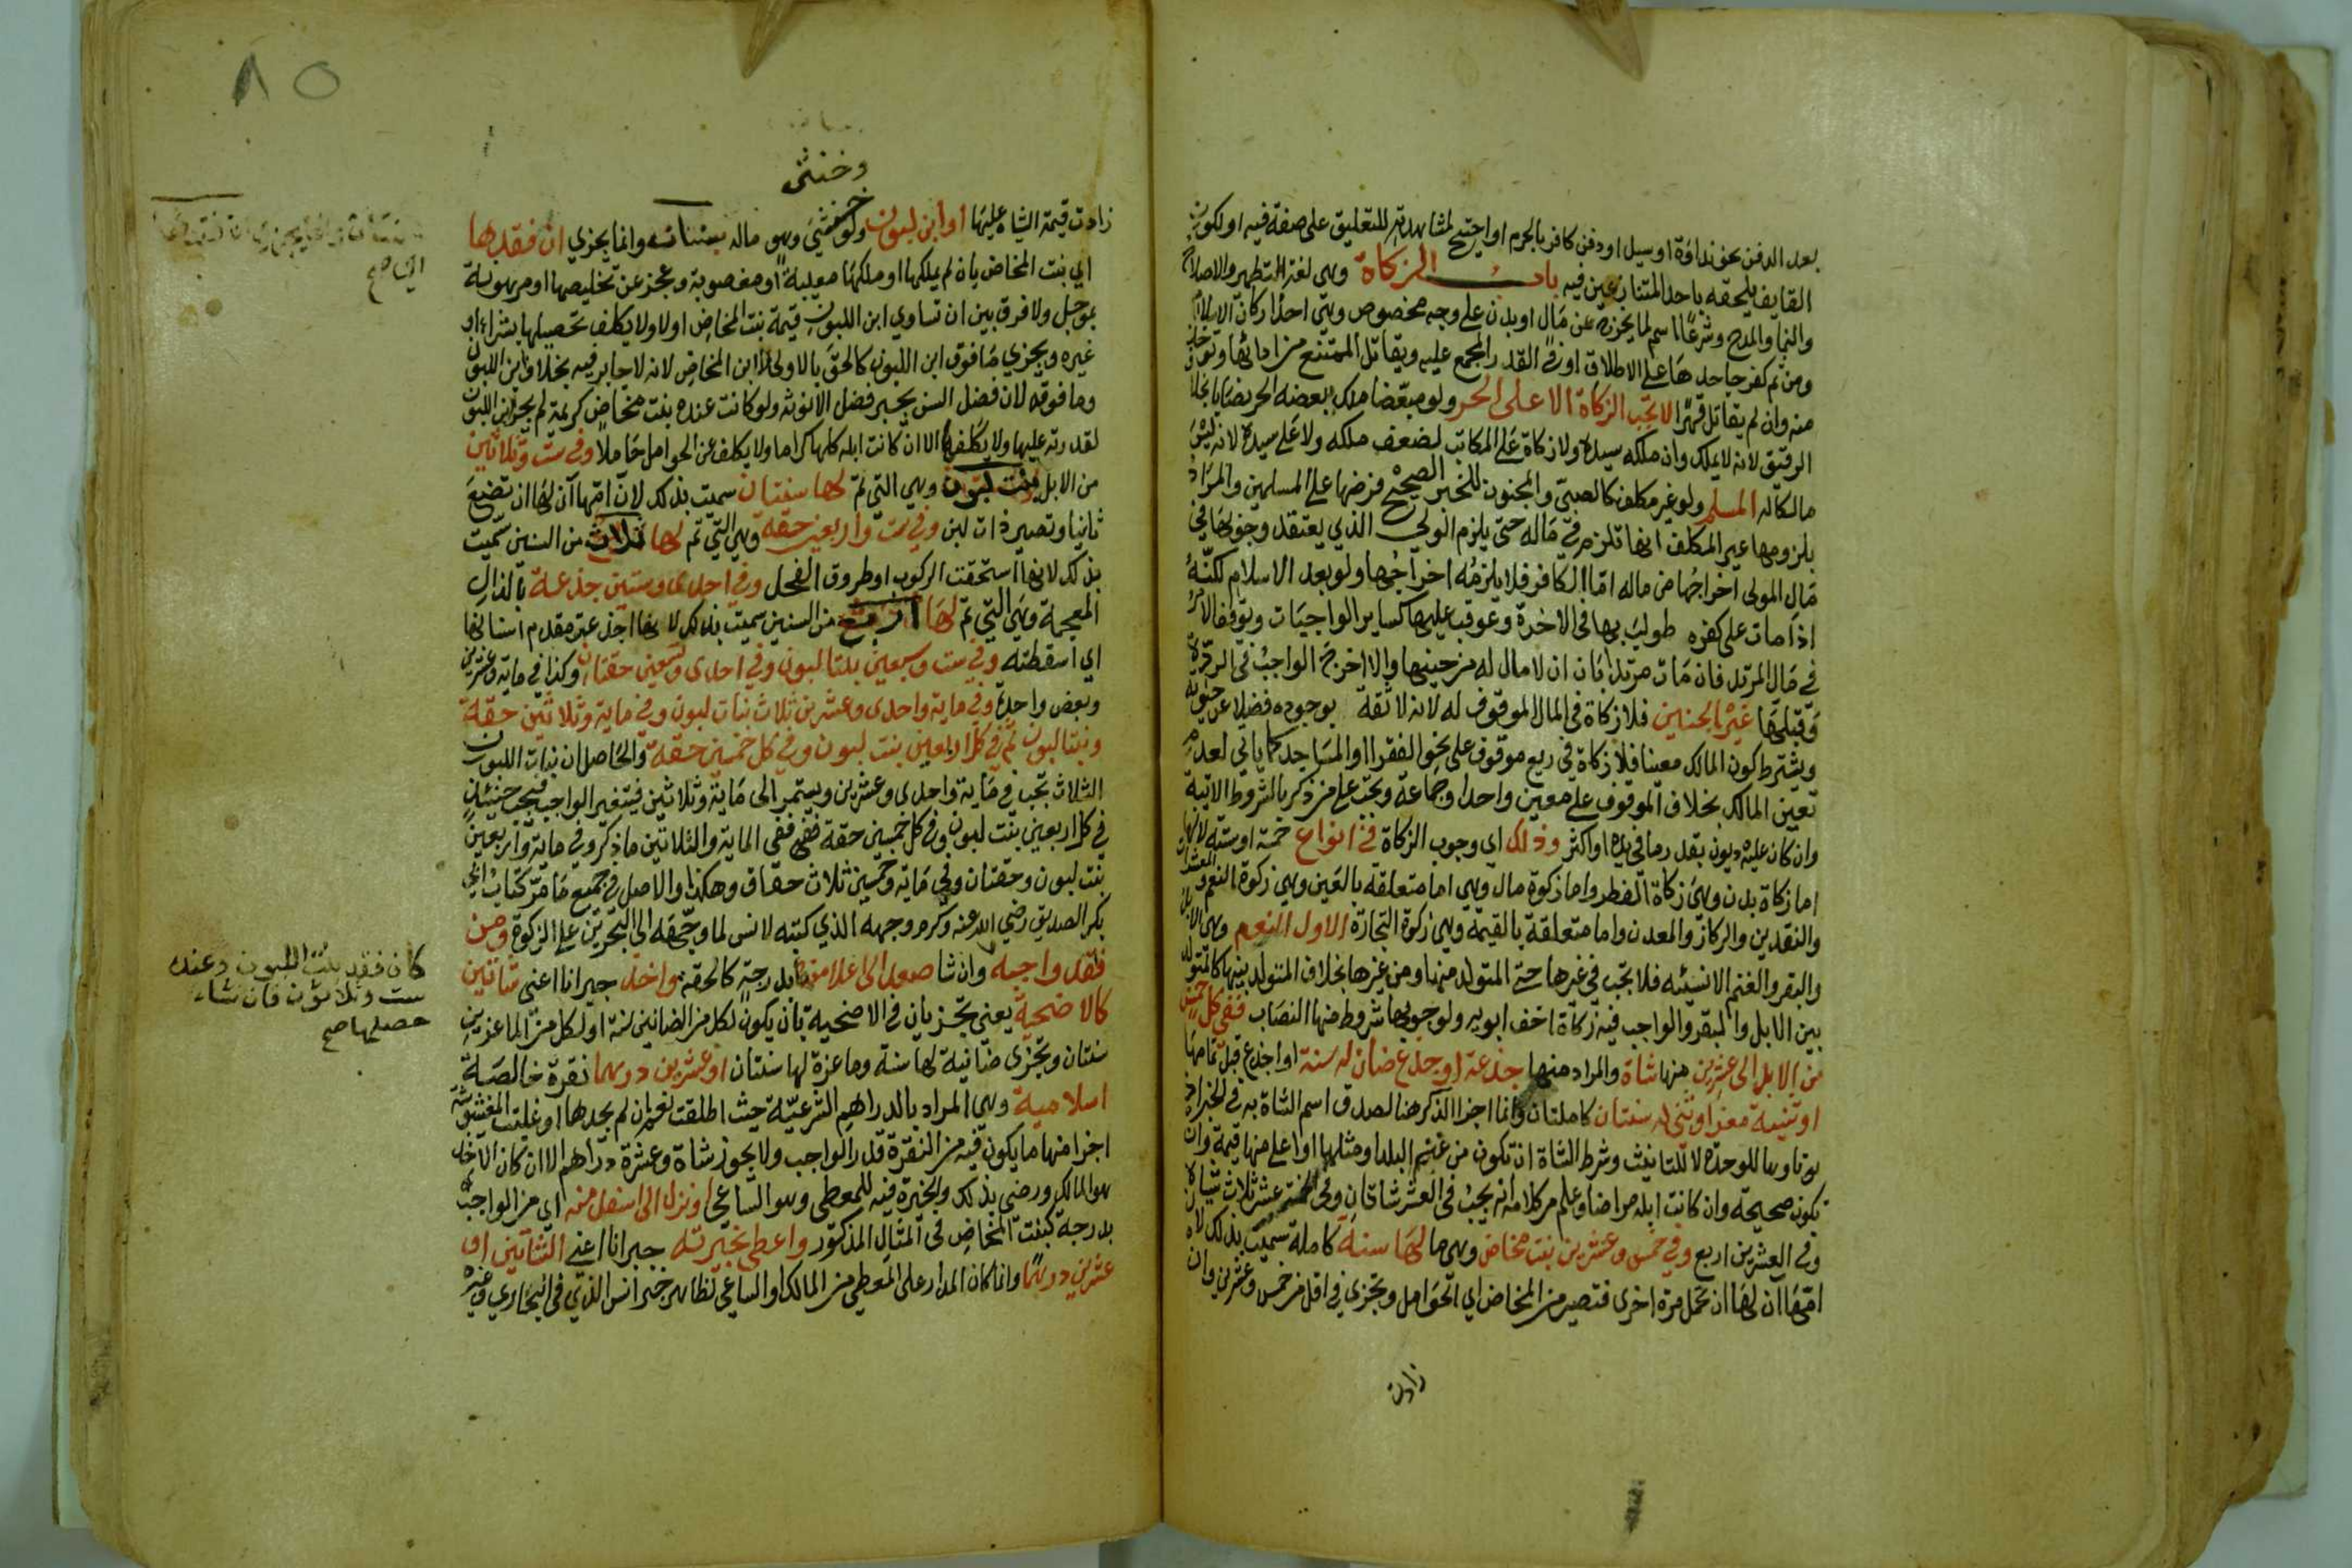 بعد الدفن نحو نداوة او سيل او دفن كافر بالحرم او احتيج لمشاهدته للتعليق على صفة فيه او لكون
القايف يلحقه باحد المتنازعين فيه باب الزكاة وهي لغة التطهير والاصلاح
والنما والمدح وشرعا اسم لما يخرج عن مال او بدن على وجه مخصوص وهي احد اركان الاسلام
ومن ثم كفر جاحدها على الاطلاق او في القدر المجمع عليه ويقاتل الممتنع من ادائها وتؤخذ
منه وان لم يقاتل قهرا لا تجب الزكاة الا على الحر ولو مبعضا ملك ببعضه الحر نصابا بخلاف
الرقيق لانه لا يملك وان ملكه سيده ولا زكاة على المكاتب لضعف ملكه ولا على سيده لانه ليس
مالكا له المسلم ولو غير مكلف كالصبي والمجنون للخبر الصحيح فرضها على المسلمين والمراد
بلزومها غير المكلف انها تلزم في ماله حتى يلزم الولي الذي يعتقد وجوبها في
مال المولى اخراجها من ماله اما الكافر فلا يلزمه اخراجها ولو بعد الاسلام لكنه
اذا مات على كفره طولب بها في الاخرة وعوقب عليها كساير الواجبات ويوقف الامر
في مال المرتد فان مات مرتدا بان ان لا مال له من حينها والا اخرج الواجب في الردة
وقبلها غير الجنين فلا زكاة في المال الموقوف له لانه لا ثقة بوجوده فضلا عن حيوته
ويشترط كون المالك معينا فلا زكاة في ريع موقوف على نحو الفقرا او المساجد كما ياتي لعدم
تعين المالك بخلاف الموقوف على معين واحد او جماعة وتجب على من ذكر بالشروط الاتية
وان كان عليه ديون بقدر ما في يده او اكثر وذلك اي وجوب الزكاة في انواع خمسة او ستة لانها
اما زكاة بدن وهي زكاة الفطر واما زكوة مال وهي اما متعلقة بالعين وهي زكوة النعم والمعشرات
والنقدين والركاز والمعدن واما متعلقة بالقيمة وهي زكوة التجارة الاول النعم وهي الابل
والبقر والغنم الانسية فلا تجب في غيرها حتى المتولد منها ومن غيرها بخلاف المتولد بينها كالمتولد
بين الابل والبقر والواجب فيه زكاة اخف ابويه ولوجوبها شروط منها النصاب ففي كل خمس
من الابل الى عشرين منها شاة والمراد منها جذعة او جذع ضان له سنة او اجذع قبل تمامها
او ثنية معز او ثني له سنتان كاملتان وانما اجزا الذكر هنا لصدق اسم الشاة به في الخبر اذ
هو تاوها للوحدة لا للتانيث وشرط الشاة ان تكون من غنم البلد او مثلها او اعلى منها قيمة وان
تكون صحيحة وان كانت ابله مراضا وعلم من كلامه انه يجب في العشر شاتان وفي الخمسة عشر ثلاث شياه
وفي العشرين اربع وفي خمس وعشرين بنت مخاض وهي ما لها سنة كاملة سميت بذلك لان
امها ان لها ان تحمل مرة اخرى فتصير من المخاض اي الحوامل وتجزي في اقل من خمس وعشرين وان
زادت
٨٥
وخنثى
زادت قيمة الشاه عليها او ابن لبون ولو خنثى وهو ماله سنتان وانما يجزي ان فقدها
اي بنت المخاض بان لم يملكها او ملكها معيبة او مغصوبة وعجز عن تخليصها او مرهونة
بموجل ولا فرق بين ان تساوي ابن اللبون قيمة بنت المخاض او لا ولا يكلف تحصيلها بشراء او
غيره ويجزي ما فوق ابن اللبون كالحق بالاولى لا ابن المخاض لانه لا جابر فيه بخلاف ابن اللبون
وما فوقه لان فضل السن يجبر فضل الانوثه ولو كانت عنده بنت مخاض كريمة لم يجز ابن اللبون
لقدرته عليها ولا يكلفها الا ان كانت ابله كلها كراما ولا يكلف عن الحوامل حاملا وفي ست وثلاثين
من الابل بنت لبون وهي التي تم لها سنتان سميت بذلك لان امها آن لها ان تضع
ثانيا وتصير ذات لبن وفي ست واربعين حقة وهي التي تم لها ثلاث من السنين سميت
بذلك لانها استحقت الركوب او طروق الفحل وفي احدى وستين جذعة بالذال
المعجمة وهي التي تم لها اربع من السنين سميت بذلك لانها اجذعت مقدم اسنانها
اي اسقطته وفي ست وسبعين بنتا لبون وفي احدى وتسعين حقتان وكذا في ماية وعشرين
وبعض واحدة وفي ماية واحدى وعشرين ثلاث بنات لبون وفي ماية وثلاثين حقة
وبنتا لبون ثم في كل اربعين بنت لبون وفي كل خمسين حقة والحاصل ان بنات اللبون
الثلاث تجب في ماية واحدى وعشرين ويستمر الى ماية وثلاثين فيتغير الواجب فيجب حينئذ
في كل اربعين بنت لبون وفي كل خمسين حقة ففي الماية والثلاثين ما ذكر وفي ماية واربعين
بنت لبون وحقتان وفي ماية وخمسين ثلاث حقاق وهكذا والاصل في جميع ما مر كتاب ابي
بكر الصديق رضي الله عنه وكرم وجهه الذي كتبه لانس لما وجهه الى البحرين على الزكوة ومن
فقد واجبه وان شا صعد الى اعلا منه بدرجة كالحقة واخذ جبرانا اعني شاتين
كالاضحية يعني تجزيان في الاضحية بان يكون لكل من الضانين سنة او لكل من الماعزين
سنتان وتجزى ضانية لها سنة وماعزة لها سنتان او عشرين درهما نقرة خالصة
اسلامية وهي المراد بالدراهم الشرعية حيث اطلقت نعم ان لم يجدها او غلبت المغشوشة
اجزا منها ما يكون فيه من النقرة قدر الواجب ولا يجوز شاة وعشرة دراهم الا ان كان الاخذ
هو المالك ورضي بذلك والخيرة فيه للمعطي وهو الساعي او نزل الى اسفل منه اي من الواجب
بدرجة كبنت المخاض في المثال المذكور واعطى بخيرته جبرانا اعني الشاتين او
عشرين درهما وانما كان المدار على المعطي من المالك او الساعي لظاهر خبر انس الذي في البخاري وغيره
كان فقد بنت اللبون وعنده
ست وثلاثون فان شاء
حصلها صح